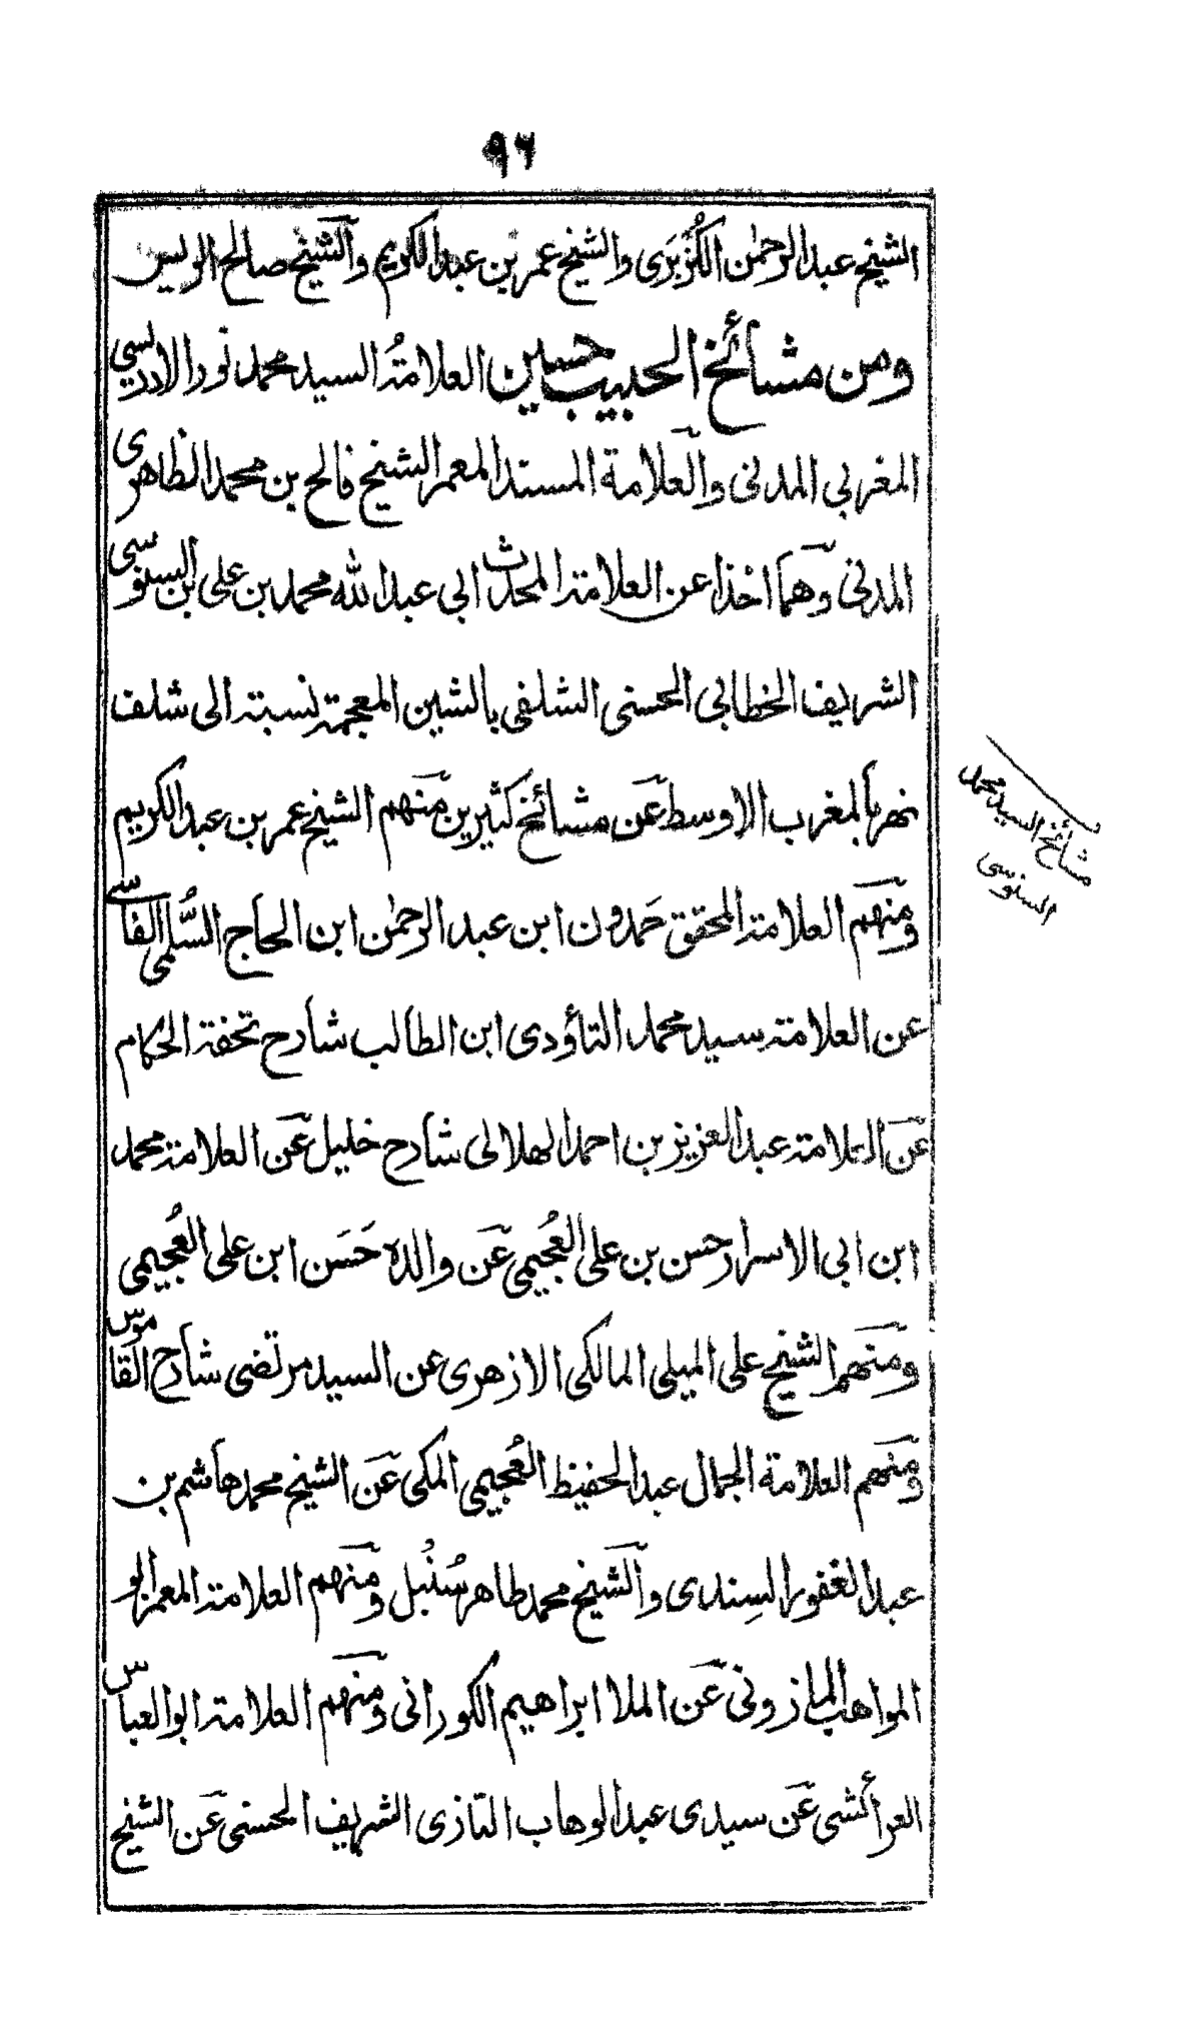 ٩٦
الشيخ عبد الرحمٰن الكُزْبَرَى والشيخ عمر بن عبد الكريم والشيخ صالح الريس
ومن مشائخ الحبيب حسين العلامةُ السيد محمد نور الادريسي
المغربي المدنى والعلامة المسند المعمر الشيخ فالح بن محمد الظاهرى
المدنى وهما اخذا عن العلامة المحدث ابي عبد الله محمد بن على بن السنوسى
الشريف الخطابي الحسنى الشلفى بالشين المعجمة نسبة الى شلف
نهر بالمغرب الاوسط عن مشائخ كثيرين منهم الشيخ عمر بن عبد الكريم
ومنهم العلامة المحقق حَمدون ابن عبد الرحمٰن ابن الحاج السُّلمى الفاسى
عن العلامة سيد محمد التاؤدى ابن الطالب شارح تحفة الحكام
عن العلامة عبد العزيز بن احمد الهلالى شارح خليل عن العلامة محمد
ابن ابي الاسرار حسن بن على العُجيمى عن والده حَسَن ابن على العُجيمى
ومنهم الشيخ على الميلى المالكى الازهرى عن السيد مرتضى شارح القاموس
ومنهم العلامة الجمال عبد الحفيظ العُجيمى المكى عن الشيخ محمد هاشم بن
عبد الغفور السِندى والشيخ محمد طاهر سُنْبُل ومنهم العلامة المعمر ابو
المواهب المازونى عن الملا ابراهيم الكورانى ومنهم العلامة ابو العباس
العرائشى عن سيدى عبد الوهاب التازى الشريف الحسنى عن الشيخ
مشائخ السيد محمد
السنوسى